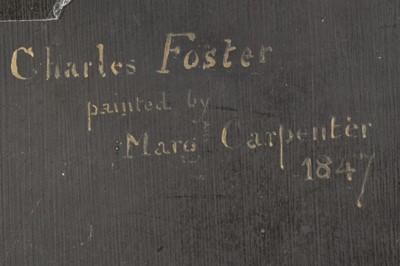 Charles Foster
painted by
Marg Carpenter
1847